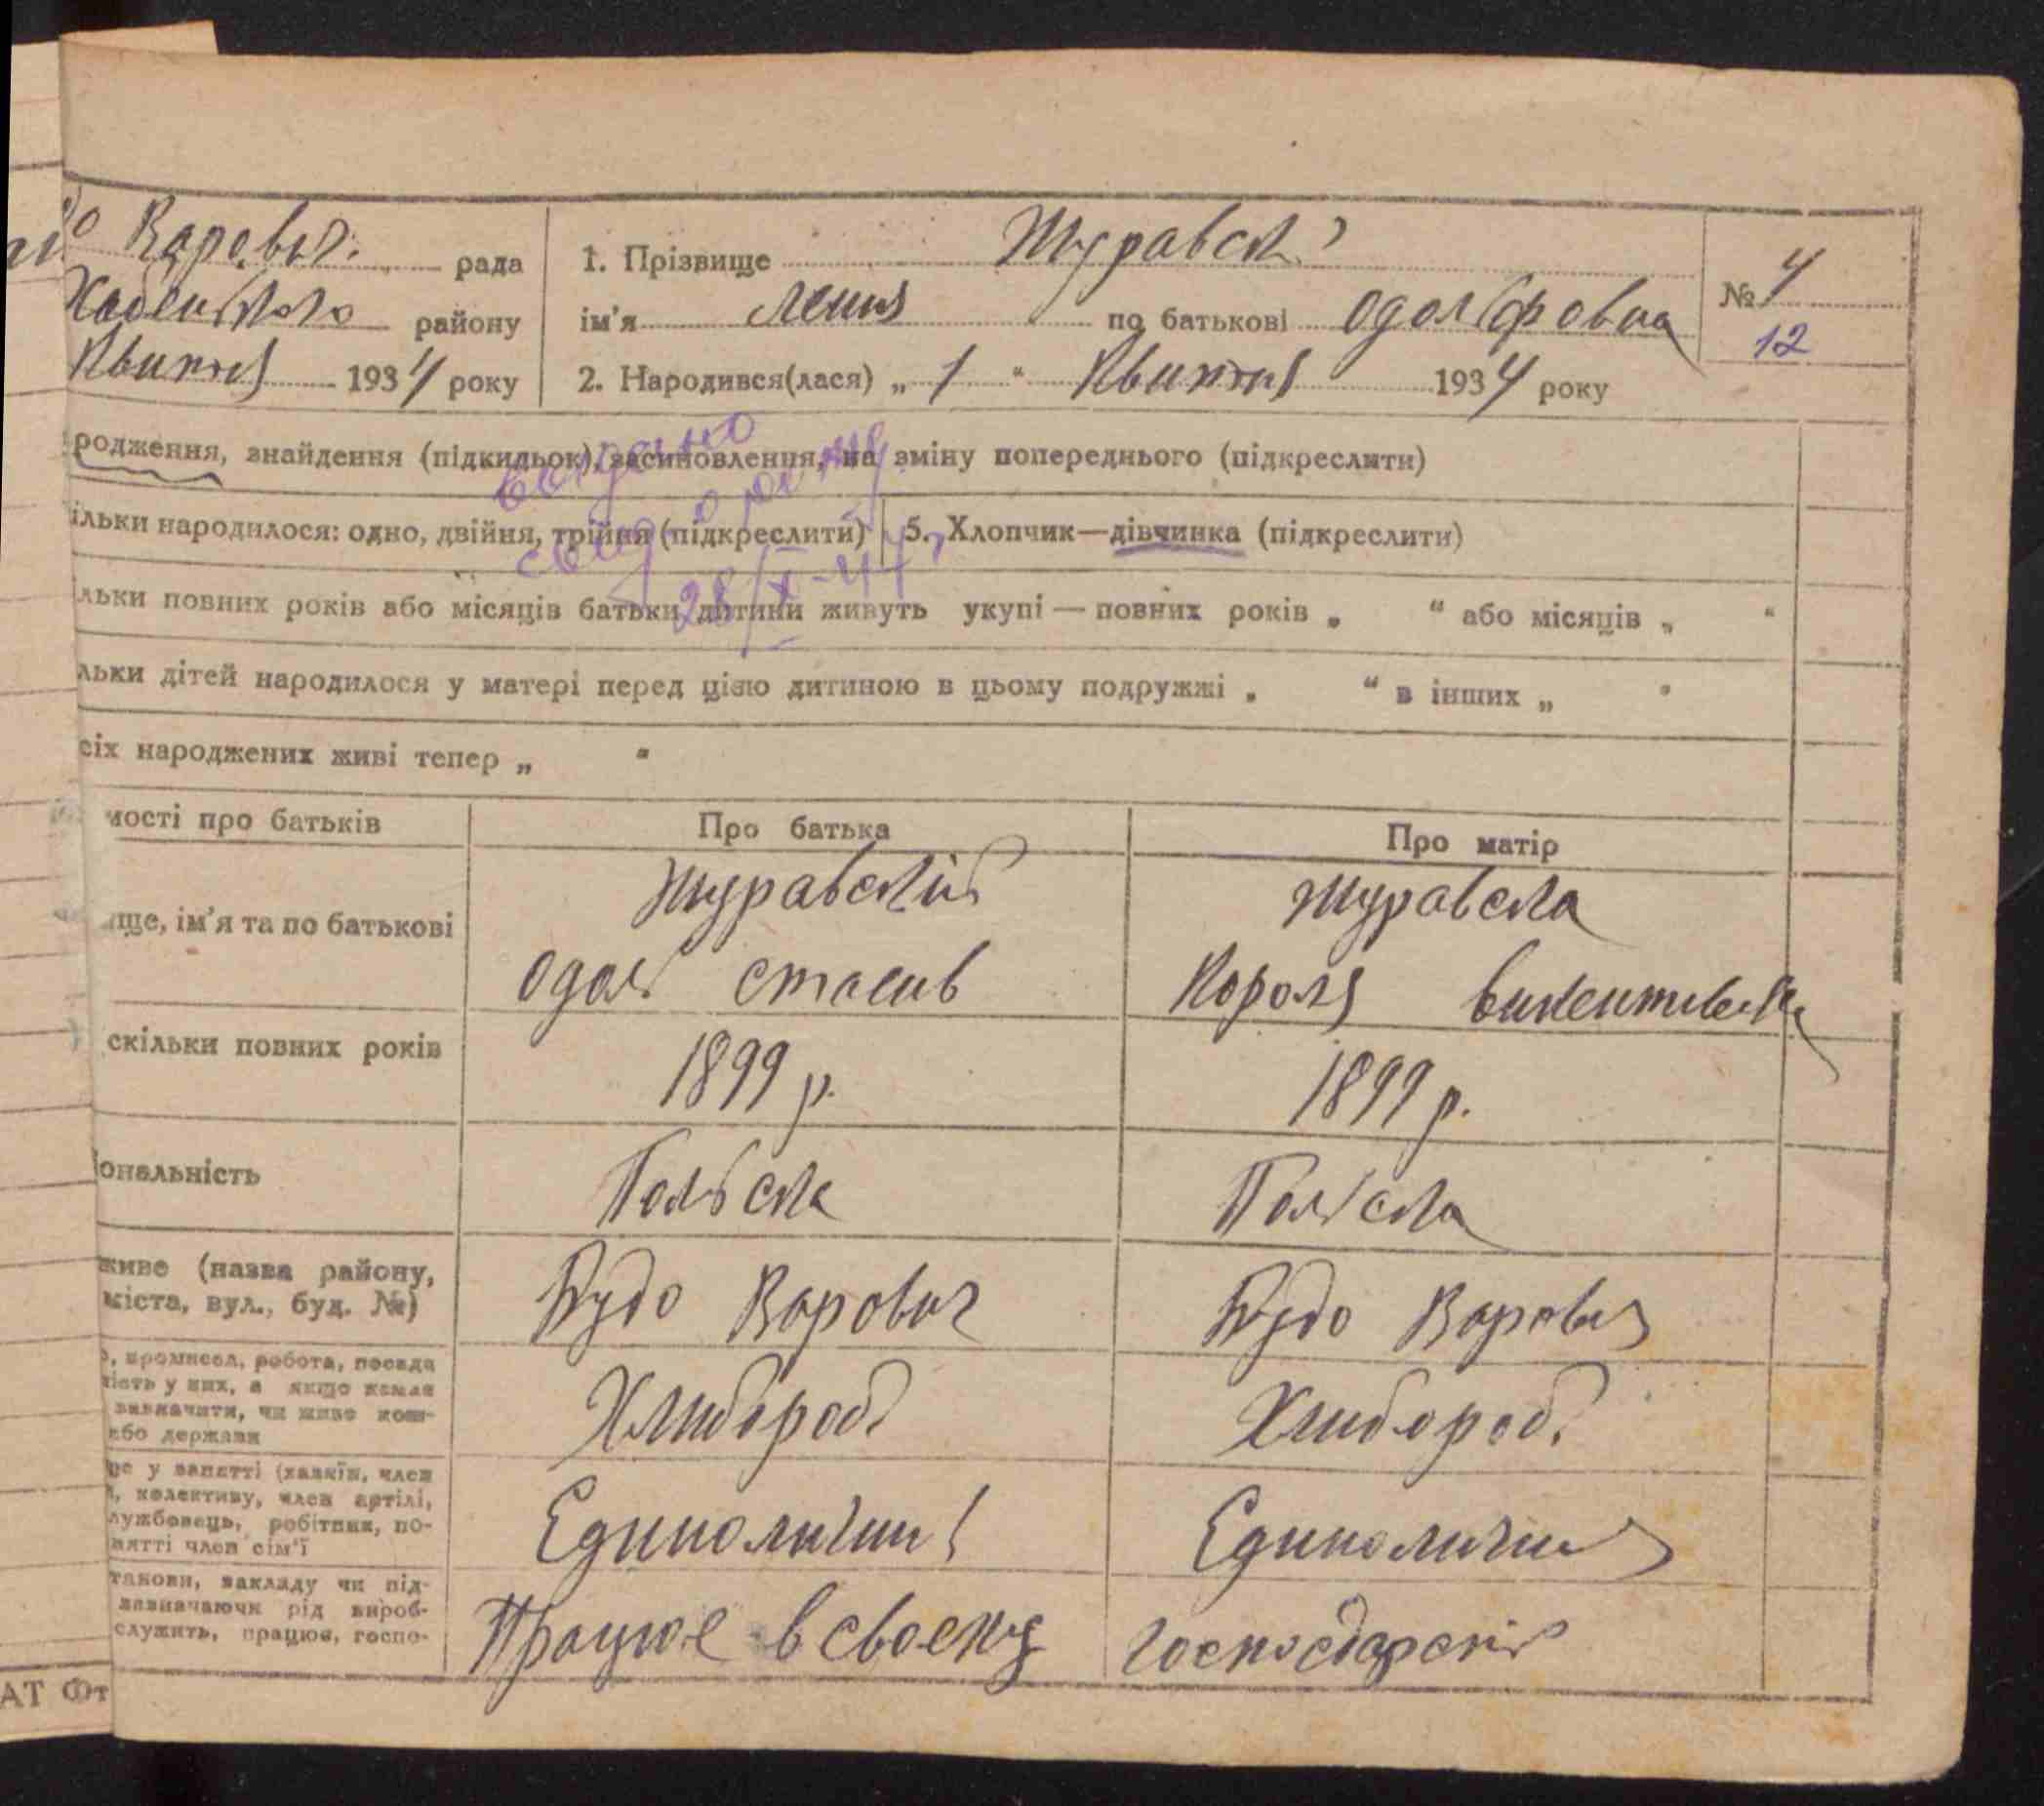 Варович. рада
Хабенського району
Квитня 1934 року
1. Прізвище Журавск
ім'я Леня по батькові Одольфовна
2. Народився(лася) „ 1 “ Квитня 1934 року
№ 4
12
родження, знайдення (підкидьок), засиновлення, на зміну попереднього (підкреслити)
ільки народилося: одно, двійня, трійня (підкреслити) 5. Хлопчик—дівчинка (підкреслити)
28/X-44
льки повних років або місяців батьки дитини живуть укупі — повних років „ “ або місяців „ “
льки дітей народилося у матері перед цією дитиною в цьому подружжі „ “ в інших „ “
сіх народжених живі тепер „ “
мості про батьків Про батька Про матір
ище, ім'я та по батькові
Журавский Журавска
Одоль Стасив Король Викентивска
скільки повних років 1899 р. 1899 р.
іональність Польска Польска
живе (назва району,
міста, вул., буд. №) Будо Варович Будо Варович
о, промисел, робота, посада
ість у них, а якщо немає
зазначити, чи живе кош-
або держави
Хлибороб Хлибороб.
ще у занятті (хазяїн, член
, колективу, член артілі,
лужбовець, робітник, по-
нятті член сім'ї
Единоличник Единоличник
танови, закладу чи під-
зазначаючи рід вироб-
служить, працює, госпо-
Працює в своему господарстві
АТ Фт